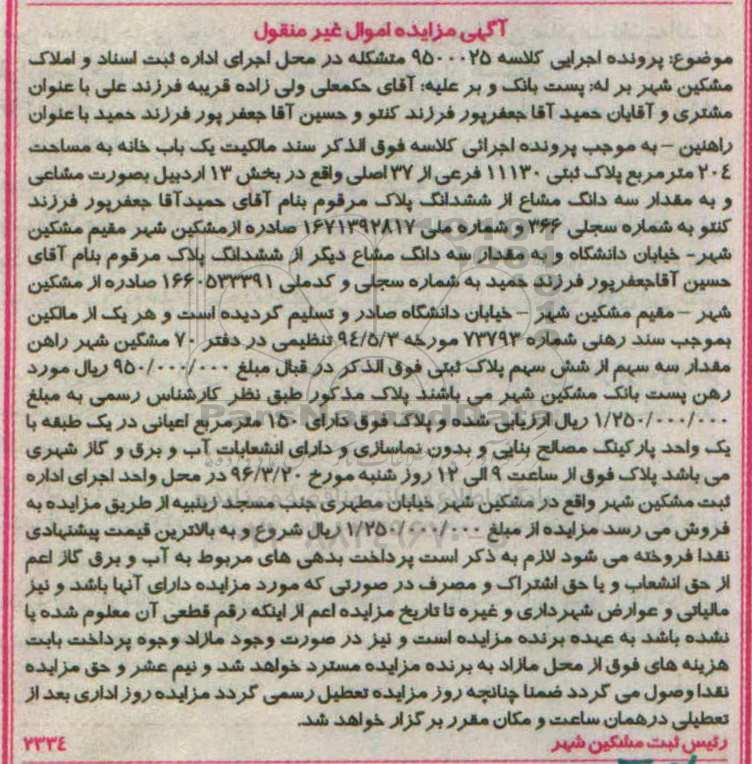 آگهی مزایده اموال غیر منقول
موضوع: پرونده اجرایی کلاسه ۹۵۰۰۰۲۵ متشکله در محل اجرای اداره ثبت اسناد و املاک
مشکین شهر بر له: پست بانک و بر علیه: آقای حکمعلی ولی زاده قریبه فرزند علی با عنوان
مشتری و آقایان حمید آقا جعفرپور فرزند کنتو و حسین آقا جعفر پور فرزند حمید با عنوان
راهنین – به موجب پرونده اجرائی کلاسه فوق الذکر سند مالکیت یک باب خانه به مساحت
۲۰٤ مترمربع پلاک ثبتی ۱۱۱۳۰ فرعی از ۳۷ اصلی واقع در بخش ۱۳ اردبیل بصورت مشاعی
و به مقدار سه دانگ مشاع از ششدانگ پلاک مرقوم بنام آقای حمیدآقا جعفرپور فرزند
کنتو به شماره سجلی ۳۶۶ و شماره ملی ۱۶۷۱۳۹۲۸۱۷ صادره ازمشکین شهر مقیم مشکین
شهر- خیابان دانشگاه و به مقدار سه دانگ مشاع دیگر از ششدانگ پلاک مرقوم بنام آقای
حسین آقاجعفرپور فرزند حمید به شماره سجلی و کدملی ۱۶۶۰۵۳۳۳۹۱ صادره از مشکین
شهر – مقیم مشکین شهر – خیابان دانشگاه صادر و تسلیم گردیده است و هر یک از مالکین
بموجب سند رهنی شماره ۷۳۷۹۳ مورخه ۹٤/۵/۳ تنظیمی در دفتر ۷۰ مشگین شهر راهن
مقدار سه سهم از شش سهم پلاک ثبتی فوق الذکر در قبال مبلغ ۹۵۰/۰۰۰/۰۰۰ ریال مورد
رهن پست بانک مشکین شهر می باشند پلاک مذکور طبق نظر کارشناس رسمی به مبلغ
۱/۲۵۰/۰۰۰/۰۰۰ ریال ارزیابی شده و پلاک فوق دارای ۱۵۰ مترمربع اعیانی در یک طبقه با
یک واحد پارکینگ مصالح بنایی و بدون نماسازی و دارای انشعابات آب و برق و گاز شهری
می باشد پلاک فوق از ساعت ۹ الی ۱۲ روز شنبه مورخ ۹۶/۳/۲۰ در محل واحد اجرای اداره
ثبت مشکین شهر واقع در مشکین شهر خیابان مطهری جنب مسجد زینبیه از طریق مزایده به
فروش می رسد مزایده از مبلغ ۱/۲۵۰/۰۰۰/۰۰۰ ریال شروع و به بالاترین قیمت پیشنهادی
نقدا فروخته می شود لازم به ذکر است پرداخت بدهی های مربوط به آب و برق گاز اعم
از حق انشعاب و یا حق اشتراک و مصرف در صورتی که مورد مزایده دارای آنها باشد و نیز
مالیاتی و عوارض شهرداری و غیره تا تاریخ مزایده اعم از اینکه رقم قطعی آن معلوم شده یا
نشده باشد به عهده برنده مزایده است و نیز در صورت وجود مازاد وجوه پرداخت بابت
هزینه های فوق از محل مازاد به برنده مزایده مسترد خواهد شد و نیم عشر و حق مزایده
نقدا وصول می گردد ضمنا چنانچه روز مزایده تعطیل رسمی گردد مزایده روز اداری بعد از
تعطیلی درهمان ساعت و مکان مقرر برگزار خواهد شد.
رئیس ثبت مشکین شهر
۲۳۳٤
ParsNamadData